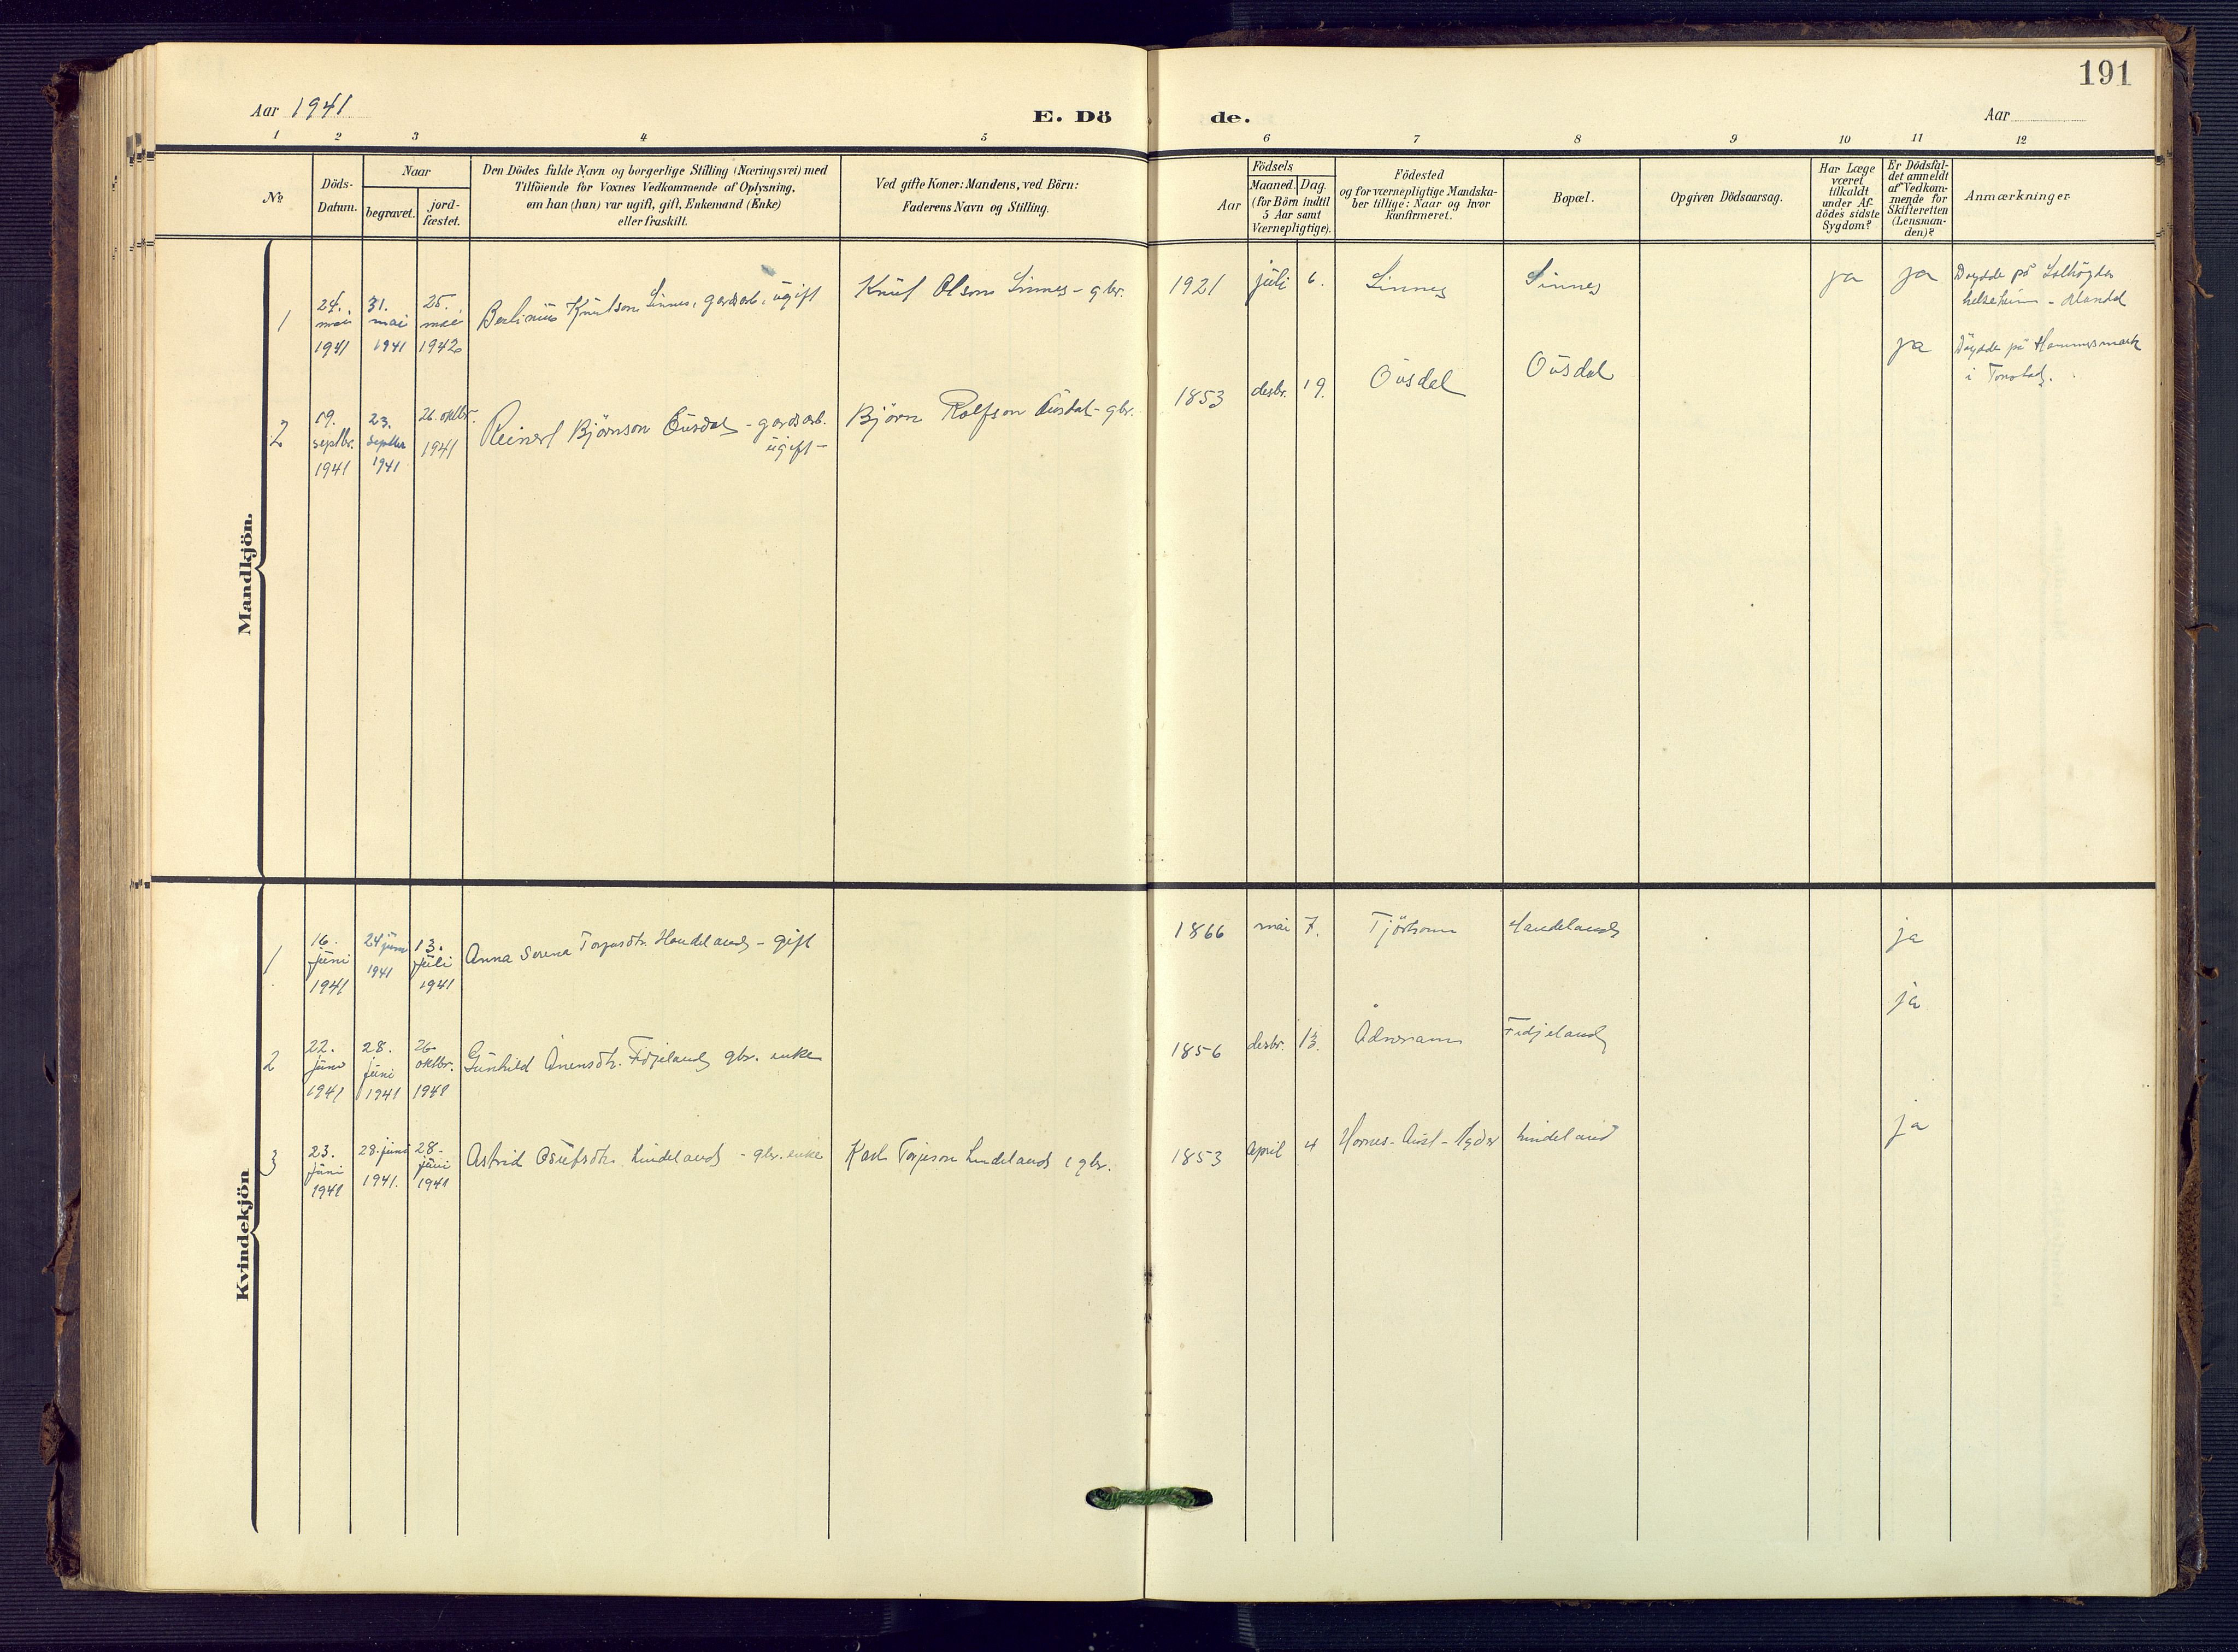 191
Aar 1941
E. Dö
de.
Aar
1 2 3 4 5 6 7 8 9 10 11 12
No
Döds-
Datum.
Naar
begravet.
jord-
fæstet.
Den Dödes fulde Navn og borgerlige Stilling (Næringsvei) med
Tilföiende for Voxnes Vedkommende af Oplysning,
om han (hun) var ugift, gift, Enkemand (Enke)
eller fraskilt.
Ved gifte Koner: Mandens, ved Börn:
Faderens Navn og Stilling.
Aar
Födsels
Maaned. Dag.
(for Börn indtil
5 Aar samt
Værnepligtige).
Födested
og for værnepligtige Mandska-
ber tillige: Naar og hvor
konfirmeret.
Bopæl.
Opgiven Dödsaarsag.
Har Læge
været
tilkaldt
under Af-
dödes sidste
Sygdom?
Er Dödsfal-
det anmeldt
af Vedkom-
mende for
Skifteretten
(Lensman-
den)?
Anmærkninger.
Mandkjön.
1
24.
mai
1941
31.
mai
1941
25.
mai
1942
Berlinius Knutson Sinnes, gardsarb. ugift
Knut Olson Sinnes - gbr.
1921 juli 6.
Sinnes
Sinnes
ja
ja
Döydde på
helseheim - Mandal
2
19.
septbr.
1941
23.
septbr
1941
26. oktbr.
1941
Reinert Björnson Ousdal - gardsarb.
ugift -
Björn Rolfson Ousdal - gbr.
1853 desbr. 19.
Ousdal
Ousdal
ja
Döydde på Hammersmark
i Tonstad.
Kvindekjön
1
16.
juni
1941
24 juni
1941
13.
juli
1941
Anna Serena Torjusdtr. Handeland - gift
1866 mai 7.
Tjörhom
Handeland
ja
2
22.
juni
1941
28.
juni
1941
26.
oktbr.
1941
Gunhild Ånensdtr. Fidjeland gbr. enke
1856 desbr. 13.
Ådneram
Fidjeland
ja
3
23.
juni
1941
28. juni
1941.
28.
juni
1941
Astrid Osufsdtr. Lindeland - gbr. enke
Karl Torjeson Lindeland, gbr.
1853 april 4
Hornes - Aust-Agder
Lindeland
ja